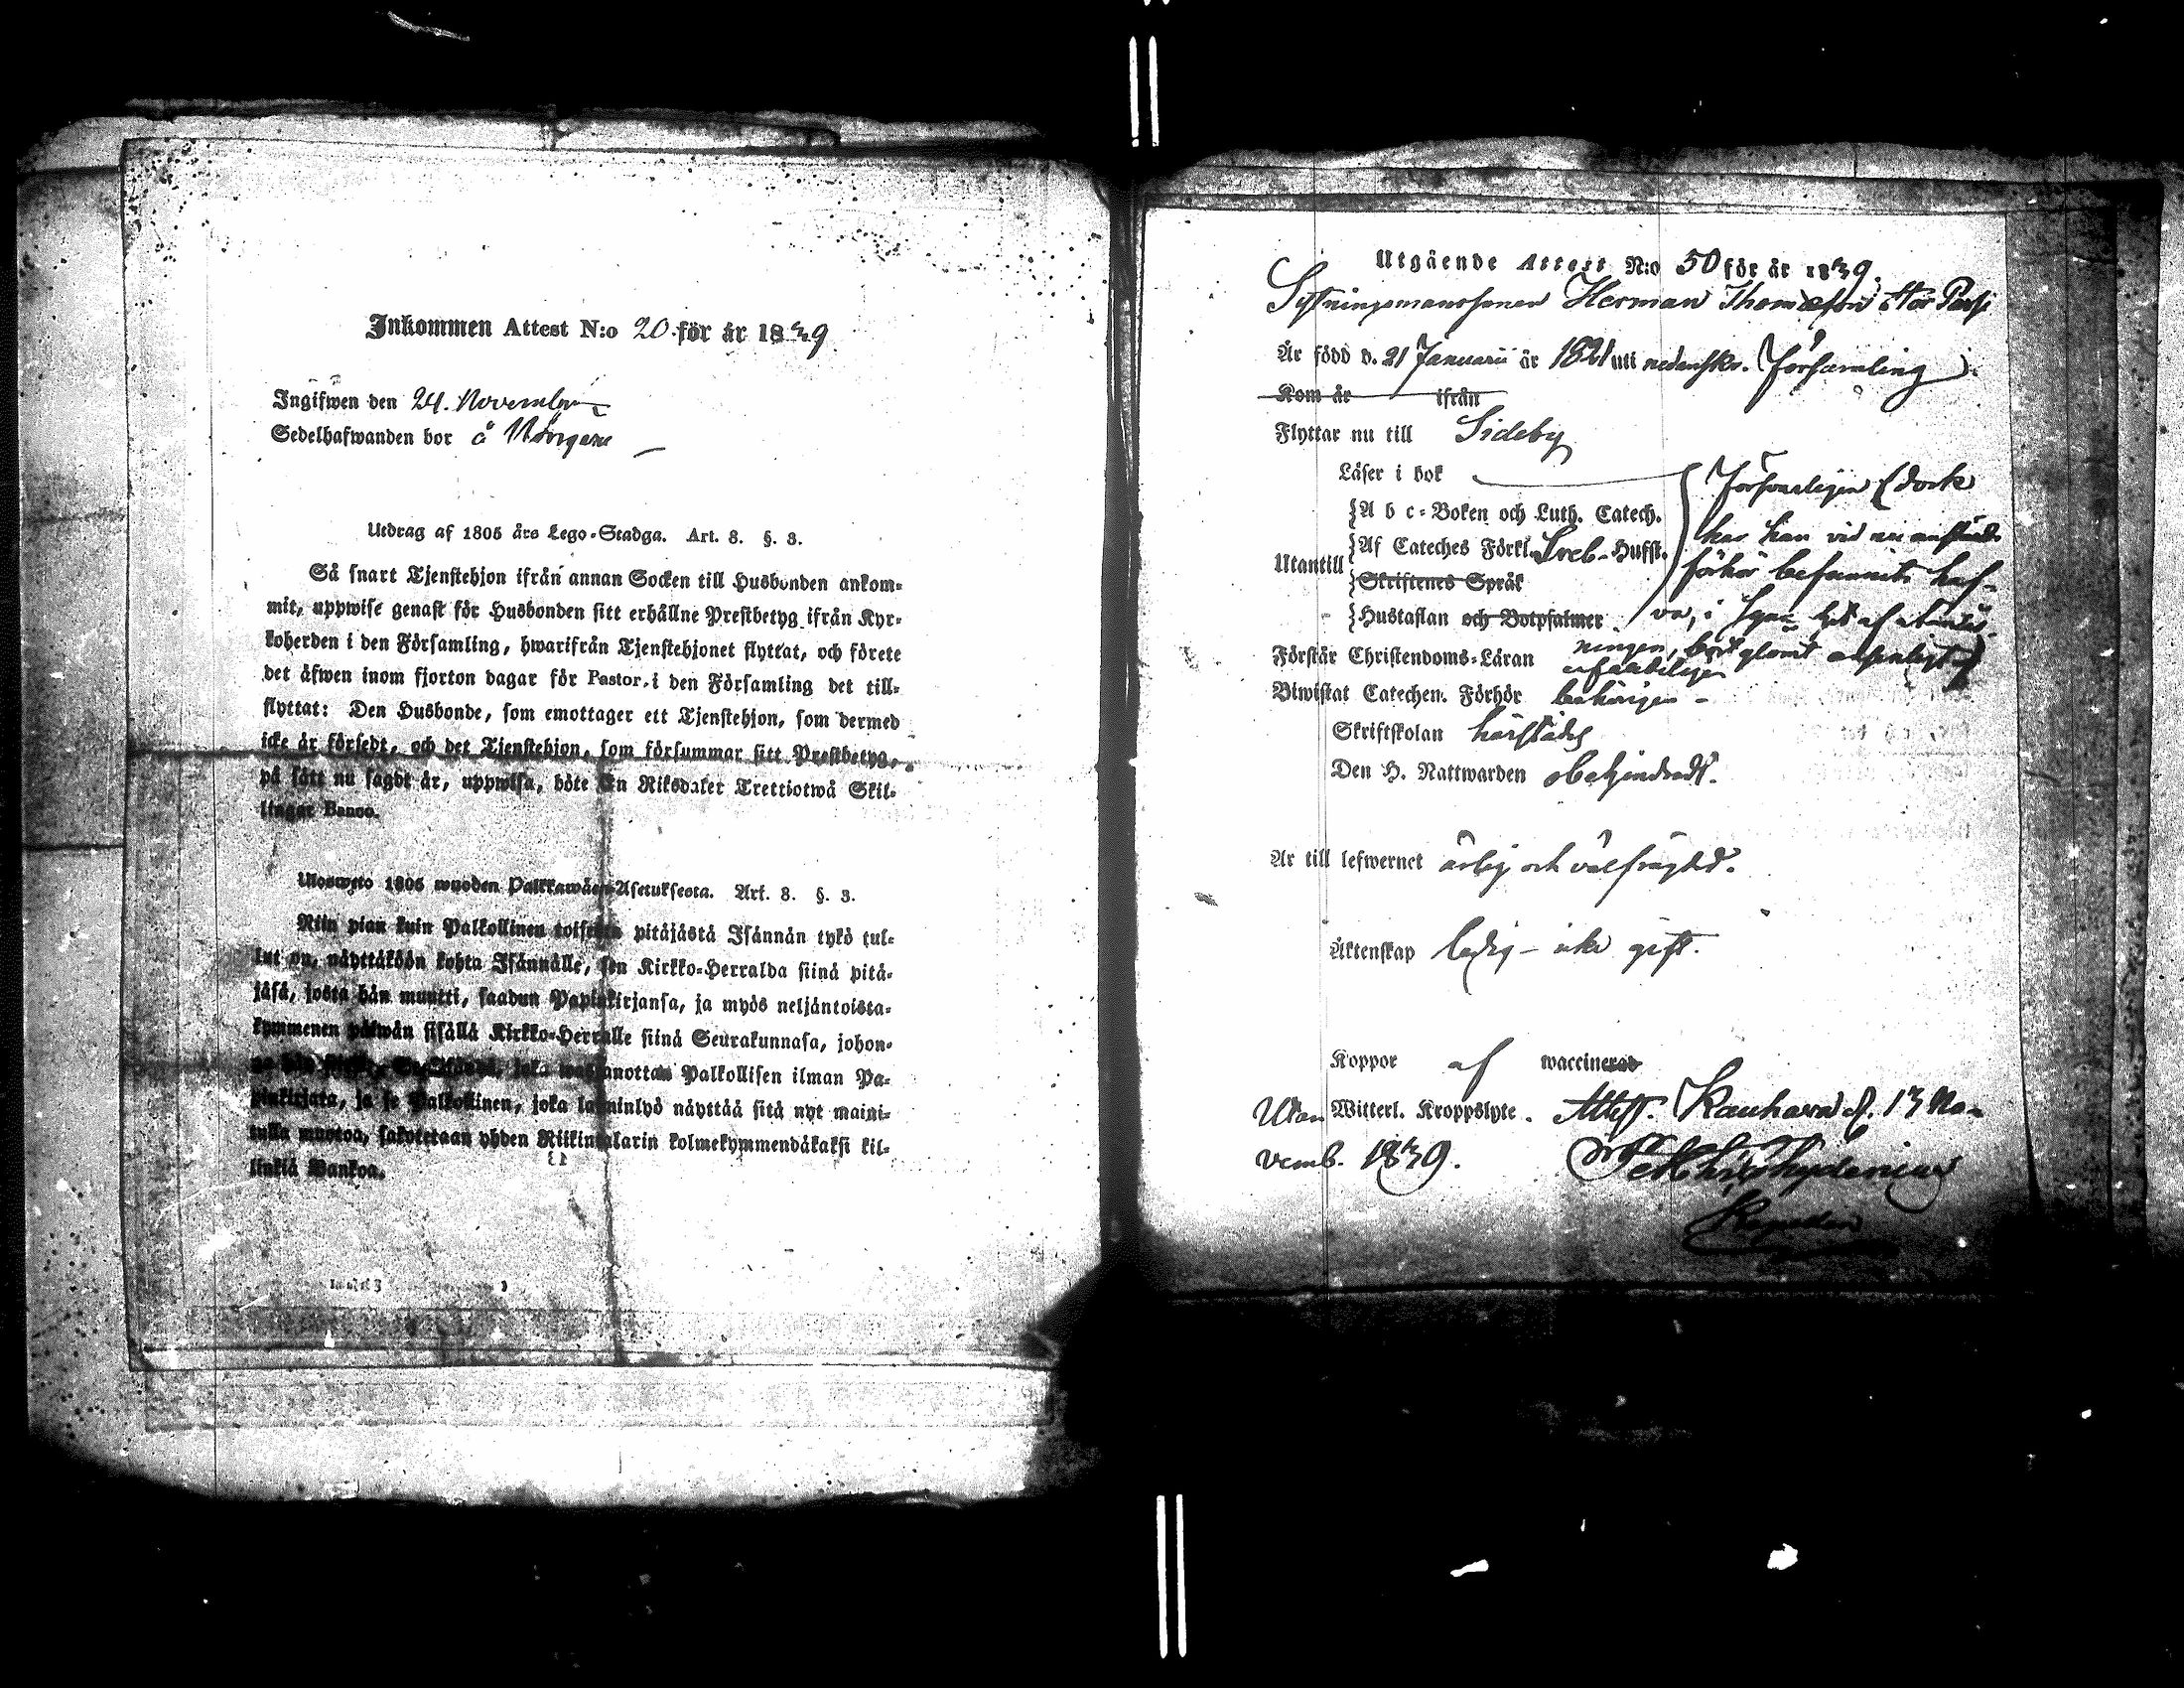 Inkommen Attest N:o 20. för år 1839
Ingifwen den 24. November
Sedelhafwanden bor å
Utdrag af 1805 års Lego-Stadga. Art. 8. §. 3.
Så snart Tjenstehjon ifrån annan Socken till Husbonden ankom-
mit, uppwise genast för Husbonden sitt erhållne Prestbetyg ifrån Kyr-
koherden i den Församling, hwarifrån Tjenstehjonet flyttat, och förete
det äfwen inom fjorton dagar för Pastor i den Församling det till-
flyttat: Den Husbonde, som emottager ett Tjenstehjon, som dermed
icke är försedt, och det Tjenstehjon, som försummar sitt Prestbetyg,
på sätt nu sagdt är, uppwisa, böte En Riksdaler Trettiotwå Skil-
lingar Banco.
Ulosweto 1805 wuoden Palkkawäen-Asetuksesta. Art. 8. §. 3.
Niin pian kuin Palkollinen toisesta pitäjästä Isännän tykö tul-
lut on, näyttäköön kohta Isännälle, sen Kirkko-Herralda siinä pitä-
jäsä, josta hän muutti, saadun Papinkirjansa, ja myös neljäntoista-
kymmenen päiwän sisällä Kirkko-Herralle siinä Seurakunnasa, johon-
Palkollisen ilman Pa-
pinkirjata, ja se Palkollinen, joka laiminlyö näyttää sitä nyt maini-
tulla muotoa, sakotetaan yhden Riikintalarin kolmekymmendäkaksi kil-
linkiä Bankoa.
Utgående Attest N:o 50 för år 1839.
Sytningsmanssonen Herman Thomasson Stor Passi
Är född d. 21 Januarii år 1821 uti nedanskr. Församling.
Kom år ifrån
Flyttar nu till Sideby
Läser i bok Förswarligen (dock
A b c-Boken och Luth. Catech.
har han vid nu anstäldt
Utantill Af Cateches Förkl. Sveb. Hufst.
förhör befunnits haf-
Skriftenes Språk
Hustaflan och Botpsalmer
va, i
Förstår Christendoms-Läran
Biwistat Catechen. Förhör behörigen -
Skriftskolan härstädes
Den H. Nattwarden obehindradt.
Är till lefwernet ärlig och välfräjdad.
Äktenskap ledig - icke gift.
Koppor af waccinerad
Utan Witterl. Kroppslyte. Attest. Kauhava d. 13 No-
vemb. 1839.
Kapellan